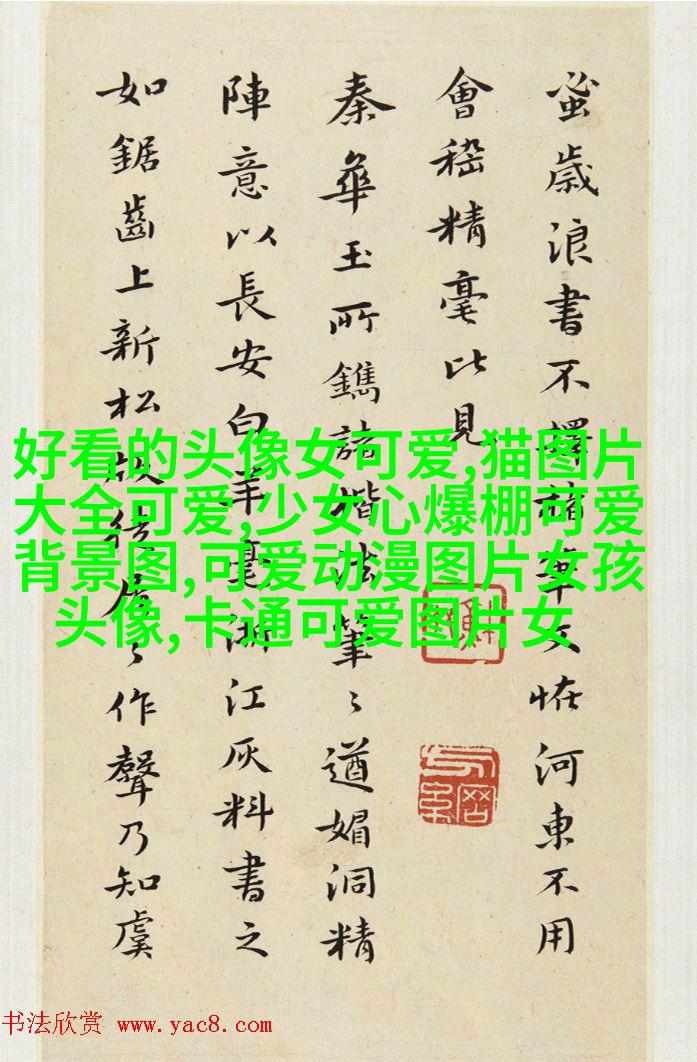 蚤歲浪書不擇諸筆文恠河東不用
會稽精毫比見
秦華玉所鐫諸楷法筆〻遒媚洞精
陣意以長安白羊毫浙江灰料書之
如鋸齒上新松作聲乃知虞
好看的头像女可爱,猫图片
大全可爱,少女心爆棚可爱
背景图,可爱动漫图片女孩
头像,卡通可爱图片女
书法欣赏 www.yac8.com